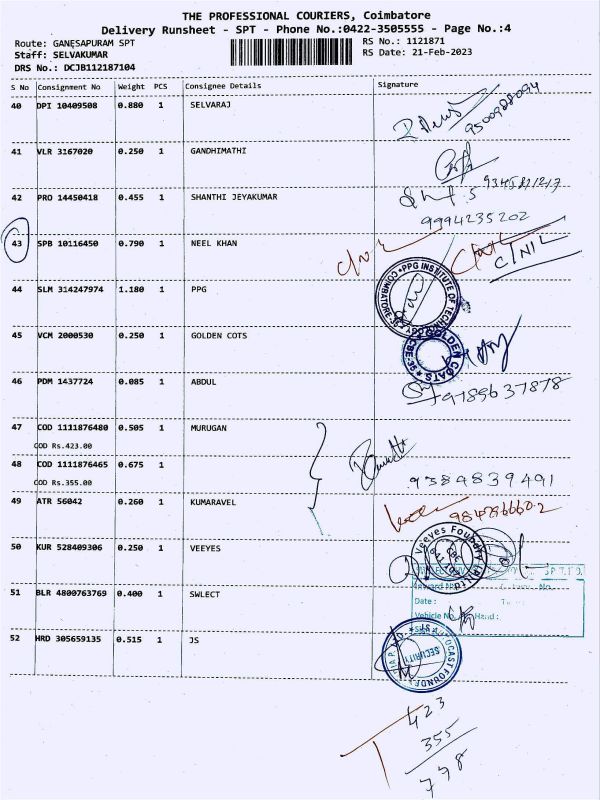 THE PROFESSIONAL COURIERS, Coimbatore
Delivery Runsheet - SPT - Phone No.:0422-3505555 - Page No.:4
Route: GANESAPURAM SPT
Staff: SELVAKUMAR
DRS No.: DCJB112187104
RS No.: 1121871
RS Date: 21-Feb-2023
S No Consignment No Weight PCS Consignee Details Signature
40 DPI 10409508 0.880 1 SELVARAJ
9500988094
41 VLR 3167020 0.250 1 GANDHIMATHI
42 PRO 14450418 0.455 1 SHANTHI JEYAKUMAR
9994235202
43 SPB 10116450 0.790 1 NEEL KHAN
C/NIL
44 SLM 314247974 1.180 1 PPG
PPG INSTITUTE OF TECHNOLOGY COIMBATORE-35
45 VCM 2000530 0.250 1 GOLDEN COTS
GOLDEN COATS CBE-35
46 PDM 1437724 0.085 1 ABDUL
9789637878
47 COD 1111876480 0.505 1 MURUGAN
COD Rs.423.00
48 COD 1111876465 0.675 1
COD Rs.355.00
9384839491
49 ATR 56042 0.260 1 KUMARAVEL
50 KUR 528409306 0.250 1 VEEYES
Veeyes Foundry
51 BLR 4800763769 0.400 1 SWLECT
Date :
Vehicle No
Hand :
52 HRD 305659135 0.515 1 JS
SECURITY
423
355
778